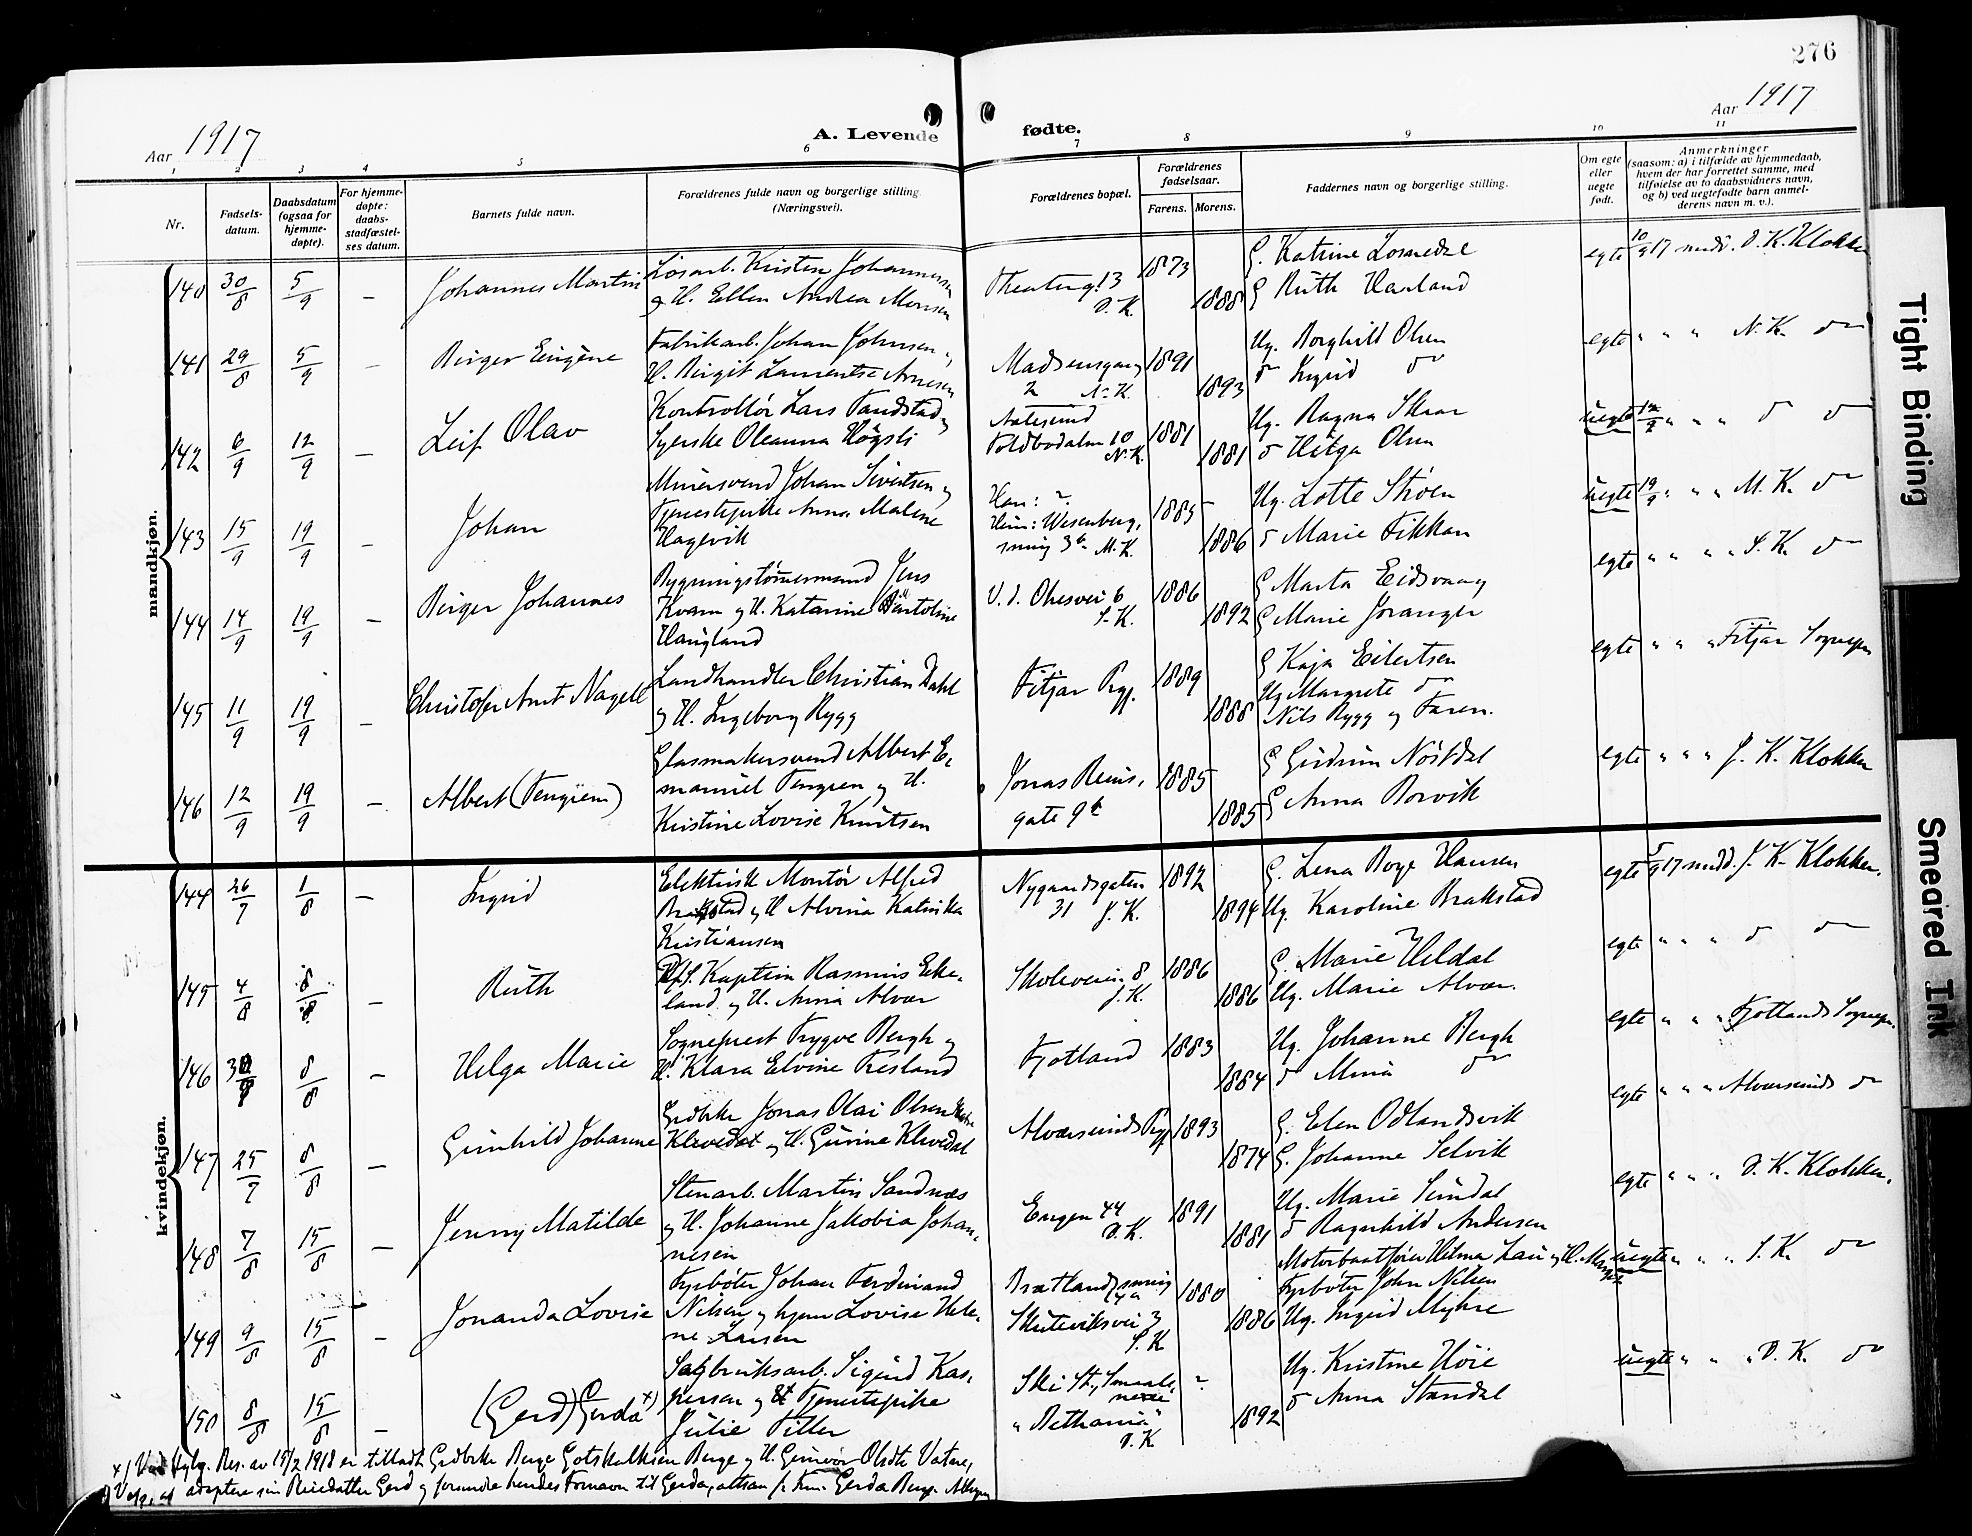 276
Aar 1917
A. Levende fødte.
Aar 1917
1 2 3 4 5 6 7 8 9 10 11
Nr.
Fødsels-
datum.
Daabsdatum
(ogsaa for
hjemme-
døpte).
For hjemme-
døpte:
daabs-
stadfæstel-
ses datum.
Barnets fulde navn.
Forældrenes fulde navn og borgerlige stilling.
(Næringsvei).
Forældrenes bopæl.
Forældrenes
fødselsaar.
Farens. Morens.
Faddernes navn og borgerlige stilling.
Om egte
eller
uegte
født.
Anmerkninger
(saasom: a) i tilfælde av hjemmedaab,
hvem der har forrettet samme, med
tilføielse av to daabsvidners navn,
og b) ved uegtefødte barn anmel-
derens navn m. v.).
mandkjøn.
140 30/8 5/9 – Johannes Martin
Løsarb. Kristen Johannessen
og H. Ellen Andrea Monsen
Theaterg. 13
D. K.
1873 1888
G. Katrine Losnedal
G Ruth Harland
egte 10/9 17 medd. D. K. Klokker
141 29/8 5/9 – Birger Eugène
Fabrikarb. Johan Johnsen
H. Birgit Laurentse Arnesen
Madsensgang
2 N. K.
1891 1893
Ug. Borghild Olsen
do Ingrid do
egte " " N. K. do
142 6/9 12/9 – Leif Olav
Kontrollør Lars Tandstad
Syerske Oleanna Høgsli
Aalesund
Toldbodalm 10
N. K.
1881 1881
Ug. Ragna Skaar
do Helga Olsen
uegte 12/9 " " do do
143 15/9 19/9 – Johan
Murersvend Johan Sivertsen og
Tjenestepike Anna Malene
Hagevik
Han: ?
Hun: Wesenberg,
smug 3b M. K.
1885 1886
Ug. Lotte Støen
do Marie Fikkan
uegte 19/9 " " M. K. do
144 14/9 19/9 – Birger Johannes
Bygningstømmermand Jens
Kvam og H. Katarine Bartoline
Haugland
V. d. Ohesvei 6
S. K.
1886 1892
G Marta Eidsvaag
G Marie Joranger
egte " " " S. K. do
145 11/9 19/9 – Christofer Arnt Nagell
Landhandler Christian Dahl
og H. Ingeborg Rygg
Fitjar Pgj.
1889 1888
G Kaja Eilertsen
Ug Margrete do
Nils Rygg og Faren.
egte " " " Fitjar Sognepr.
146 12/9 19/9 – Albert (Tengren)
Glasmakersvend Albert E-
manuel Tengren og H.
Kristine Lovise Knutsen
Jonas Reins,
gate 9b
1885 1885
G Gudrun Nøstdal
G Anna Borvik
egte " " " J. K. Klokker
kvindekjøn.
144 26/7 1/8 – Ingrid
Elektrisk Montør Alfred
Brakstad og H Alvina Katinka
Kristiansen
Nygaardsgaten
31 J. K.
1892 1894
G. Lena Boge Hansen
Ug. Karoline Brakstad
egte 5/9 17 medd. J. K. Klokker.
145 4/8 8/8 – Ruth
Kaptein Rasmus Eike-
land og H. Anna Alvær
Skoleveien 8
J. K.
1886 1886
G. Marie Heldal
Ug. Marie Alvær.
egte " " " do do
146 8/8 – Helga Marie
Sogneprest Trygve Bergh og
H. Klara Elvine Tresland
Fjotland
1883 1884
Ug. Johanne Bergh
do Mina do
egte " " " Fjotlands Sognepr.
147 25/7 8/8 – Gunhild Johanne
Grdbrk. Jonas Olai Olsen
Klevedal og H. Gurine Klevedal
Alversunds Pgj.
1893 1874
G. Elen Odlandsvik
G. Johanne Selvik
egte " " " Alversunds do
148 7/8 15/8 – Jenny Matilde
Stenarb. Martin Sandnæs
og H. Johanne Jakobia Johan-
nesen
Engen 44
D. K.
1891 1881
Ug. Marie Sundal
do Ragnhild Andersen
egte " " " D. K. Klokker.
149 9/8 15/8 – Jonanda Lovise
Fyrbøter Johan Ferdinand
Nilsen og hjem Lovise Hele-
ne Larsen
Brætlandssmug
Skuteviksvei 3
S. K
1880 1886
Motorbaatfører Hilma Lau og H.
Fyrbøter John Nilsen
Ug. Ingrid Myhre
uegte " " " S. K. do
150 8/8 15/8 – (Gerd) Gerda x)
Sagbruksarb. Sigurd Kas-
persen og Tjenestepike
Julie Tiller
Ski St., Smaale-
nene
" Bethania"
D. K
? 1892
Ug. Kristine Høie
do Anna Standal
uegte " " " D. K. do
x) Ved Kglg. Res. av 15/2 1918 er tilladt Grdbrk. Berge Gotskalksen Berge og H. Gunvor Olsdtr Vatne,
at adoptere sin Pleiedatter Gerd og forandre hendes Fornavn til Gerda, altsaa Gerda Berge